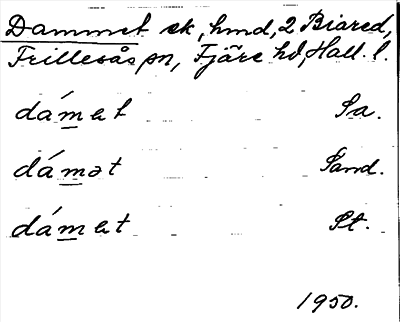 Dammet sk, hmd, 2 Biared,
Frillesås sn, Fjäre hd, Hall. l.
dámet Sa.
dámət Sand.
dámet St.
1950.